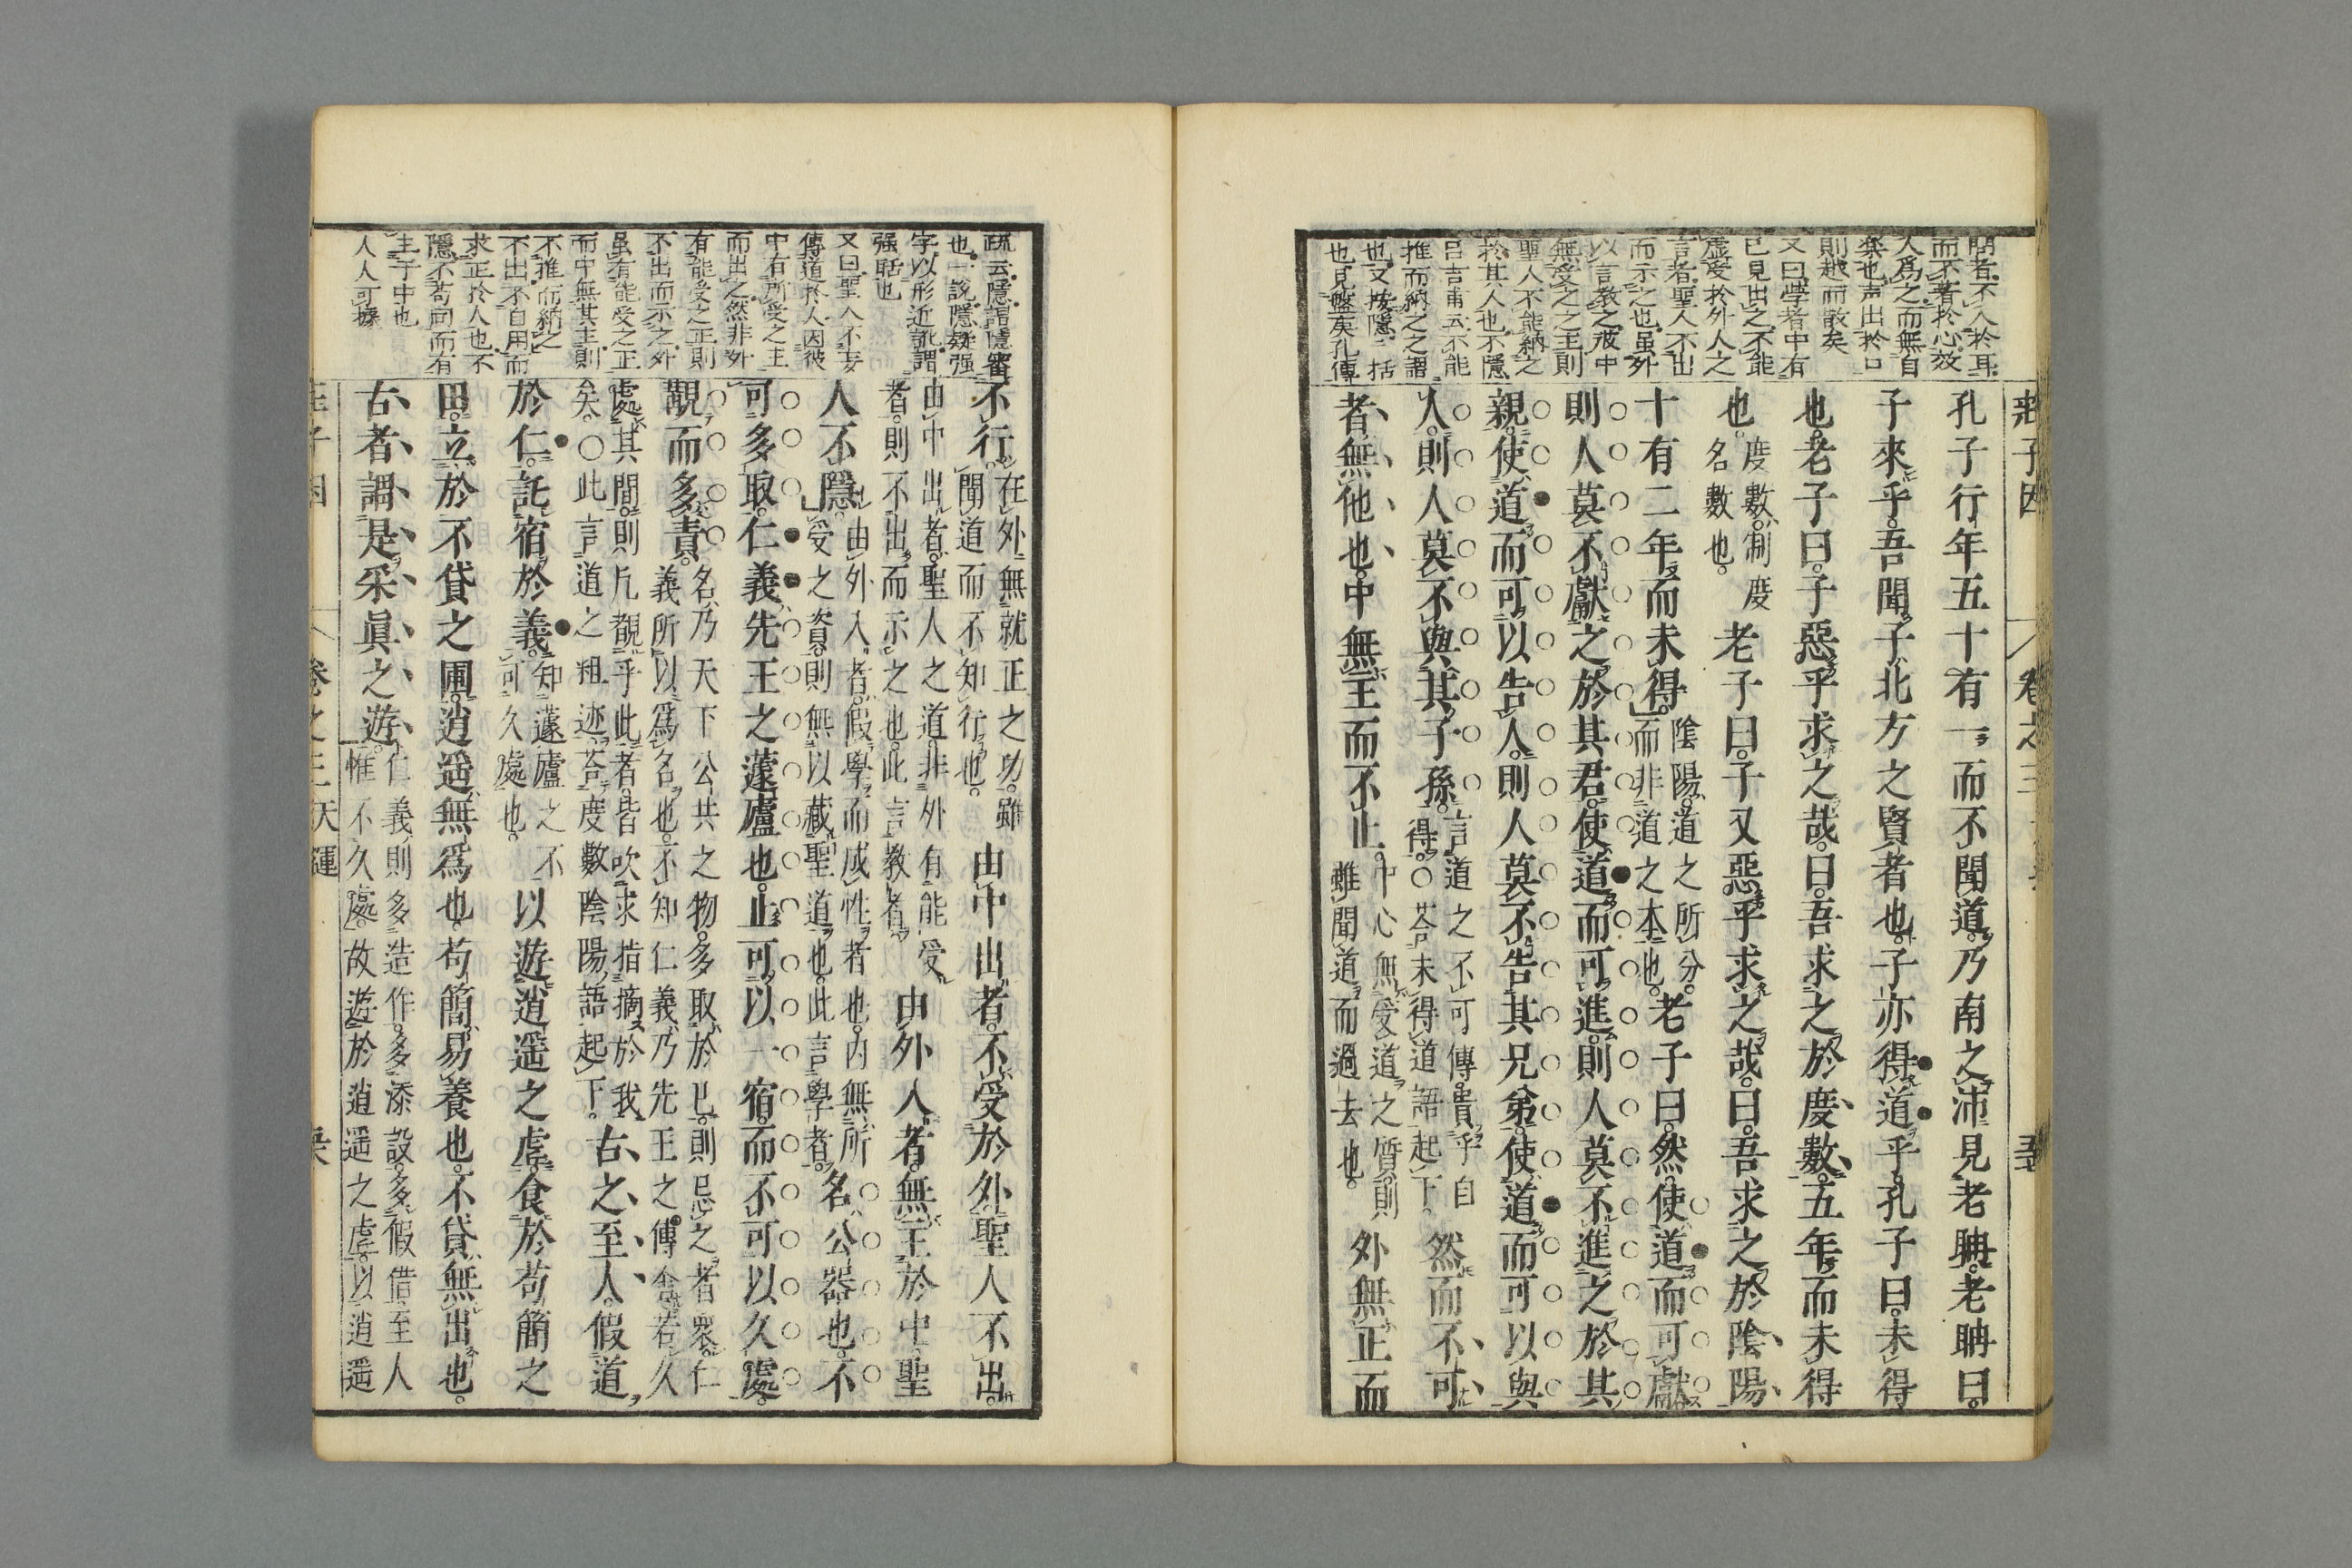 莊子因 卷之三
聞者不入於耳
而不著於心效
人爲之而無自
也声出於口
則越而散矣
又曰學者中有
已見出之不能
虛受於外人之
言者聖人不出
而示之也虽外
以言教之彼中
無受之之主則
聖人不能納之
於其人也不隱
呂吉甫云不能
推而納之之謂
也又按隱括
也見盤庚孔傳
孔子行年五十有一而不聞道。乃南之沛見老聃。老聃曰。
子來乎。吾聞子北方之賢者也。子亦得道乎。孔子曰。未得
也。老子曰。子惡乎求之哉。曰。吾求之於度數。五年而未得
也。度數。制度名數也。老子曰。子又惡乎求之哉。曰。吾求之於陰陽、
十有二年而未得。陰陽。道之所分。而非道之本也。老子曰。然。使道而可獻、
則人莫不獻之於其君。使道而可進。則人莫不進之於其
親。使道而可以告人。則人莫不告其兄弟。使道而可以與
人。則人莫不與其子孫。言道之不可傳。貴乎自得。〇荅未得道語起下。然而不可
者、無他也。中無主而不止。中心無受道之質。則雖聞道而過去也。外無正而
疏云隱謂隱審
也一説隱疑强
字以形近訛謂
强聒也
又曰聖人不妄
傳道於人因彼
中有所受之主
而出之然非外
有能受之正則
不出而示之外
虽有能受之正
而中無其主則
不推而納之
不出不自用而
求正於人也不
隱不苟同而有
主于中也
人人可據
不行。在外無就正之功。雖聞道而不知行也。由中出者。不受於外。聖人不出。
由中出者。聖人之道。非外有能受者。則不出而示之也。此言教者。由外入者。無主於中。聖
人不隱。由外入者。假學而成性者也。内無所受之資。則無以藏聖道也。此言學者。名、公器也。不
可多取。仁義、先王之蘧廬也。止可以一宿。而不可以久處。
覯而多責。名乃天下公共之物。多取於己。則忌之者衆。仁義所以爲名也。不知仁義乃先王之傳舍。若久
處其間。則凡覯乎此者。皆吹求指摘於我矣。〇此言道之粗迹。荅度數陰陽語起下。古之至人。假道
於仁。託宿於義。知蘧廬之不可久處也。以遊逍遥之虛。食於苟簡之
田。立於不貸之圃。逍遥無爲也。苟簡易養也。不貸無出也。
古者謂是采眞之遊。仁義則多造作。多添設。多假借。至人惟不久處。故遊於逍遥之虛。以逍遥
莊子因 卷之三 天運